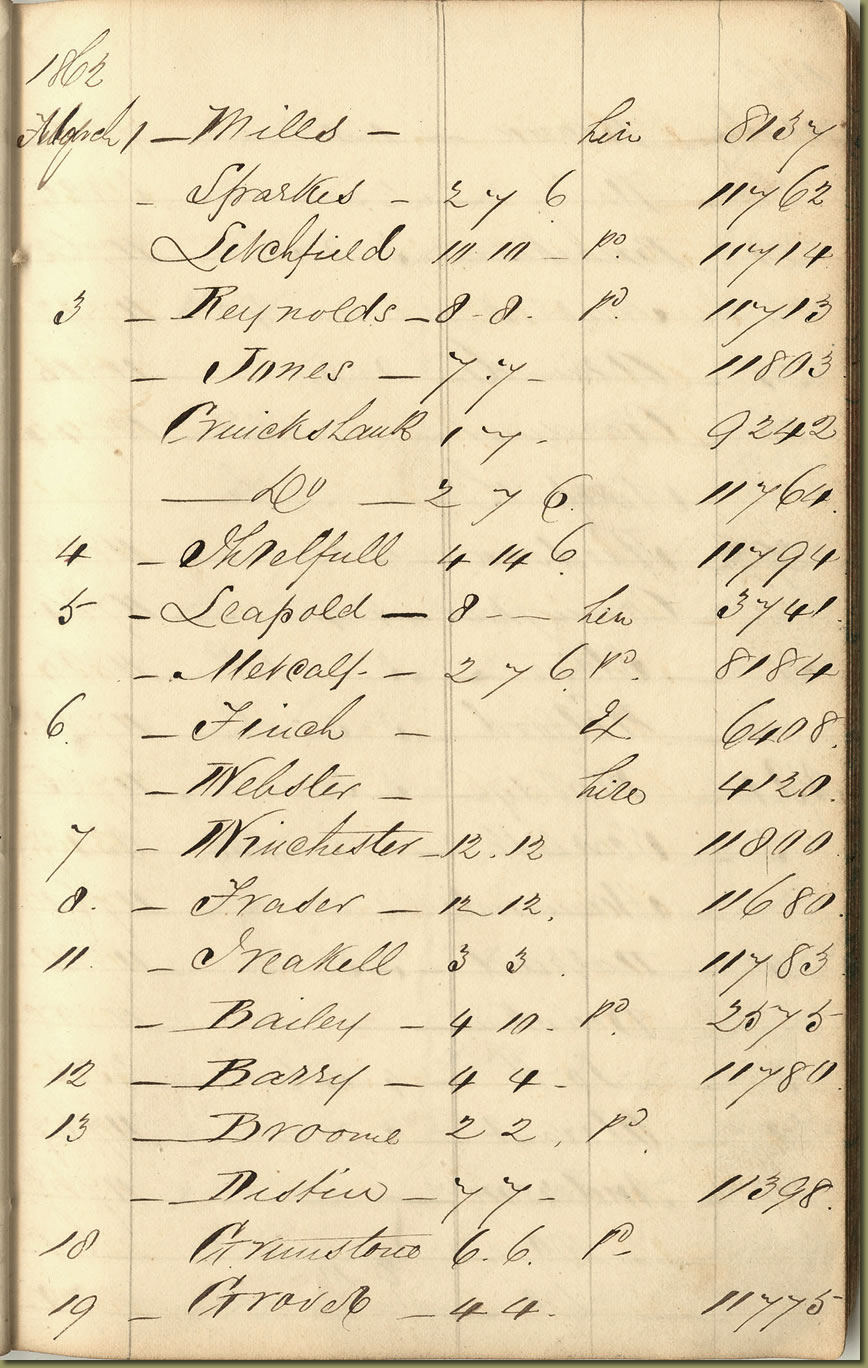 1862
March 1 — Mills — hire 8137
- Sparkes - 2 7 6 11762
Litchfield 10 10 - pd. 11714
3 — Reynolds - 8 - 8 - pd. 11713
— Jones — 7 . 7 - 11803
Cruickshank 1 7 - 9242
— Do — 2 7 6 11764
4 - Threlfull 4 14 6 11794
5 - Leapold — 8 - — hire 3741
— Metcalf - — 2 7 6 pd. 8184
6. — Finch - Ex 6408.
— Webster - hire 4120.
7 - Winchester - 12 . 12 11800
8. — Fraser — 12 12. 11680.
11. — Treakell 3 3 . 11783
- Bailey - 4 10 - pd. 2575
12 — Barry — 4 4 - 11780
13 — Broome 2 2 . pd.
— Distin — 7 7 - 11398.
18 Grimstone 6. 6. P -
19 — Grove — 4 4. 11775